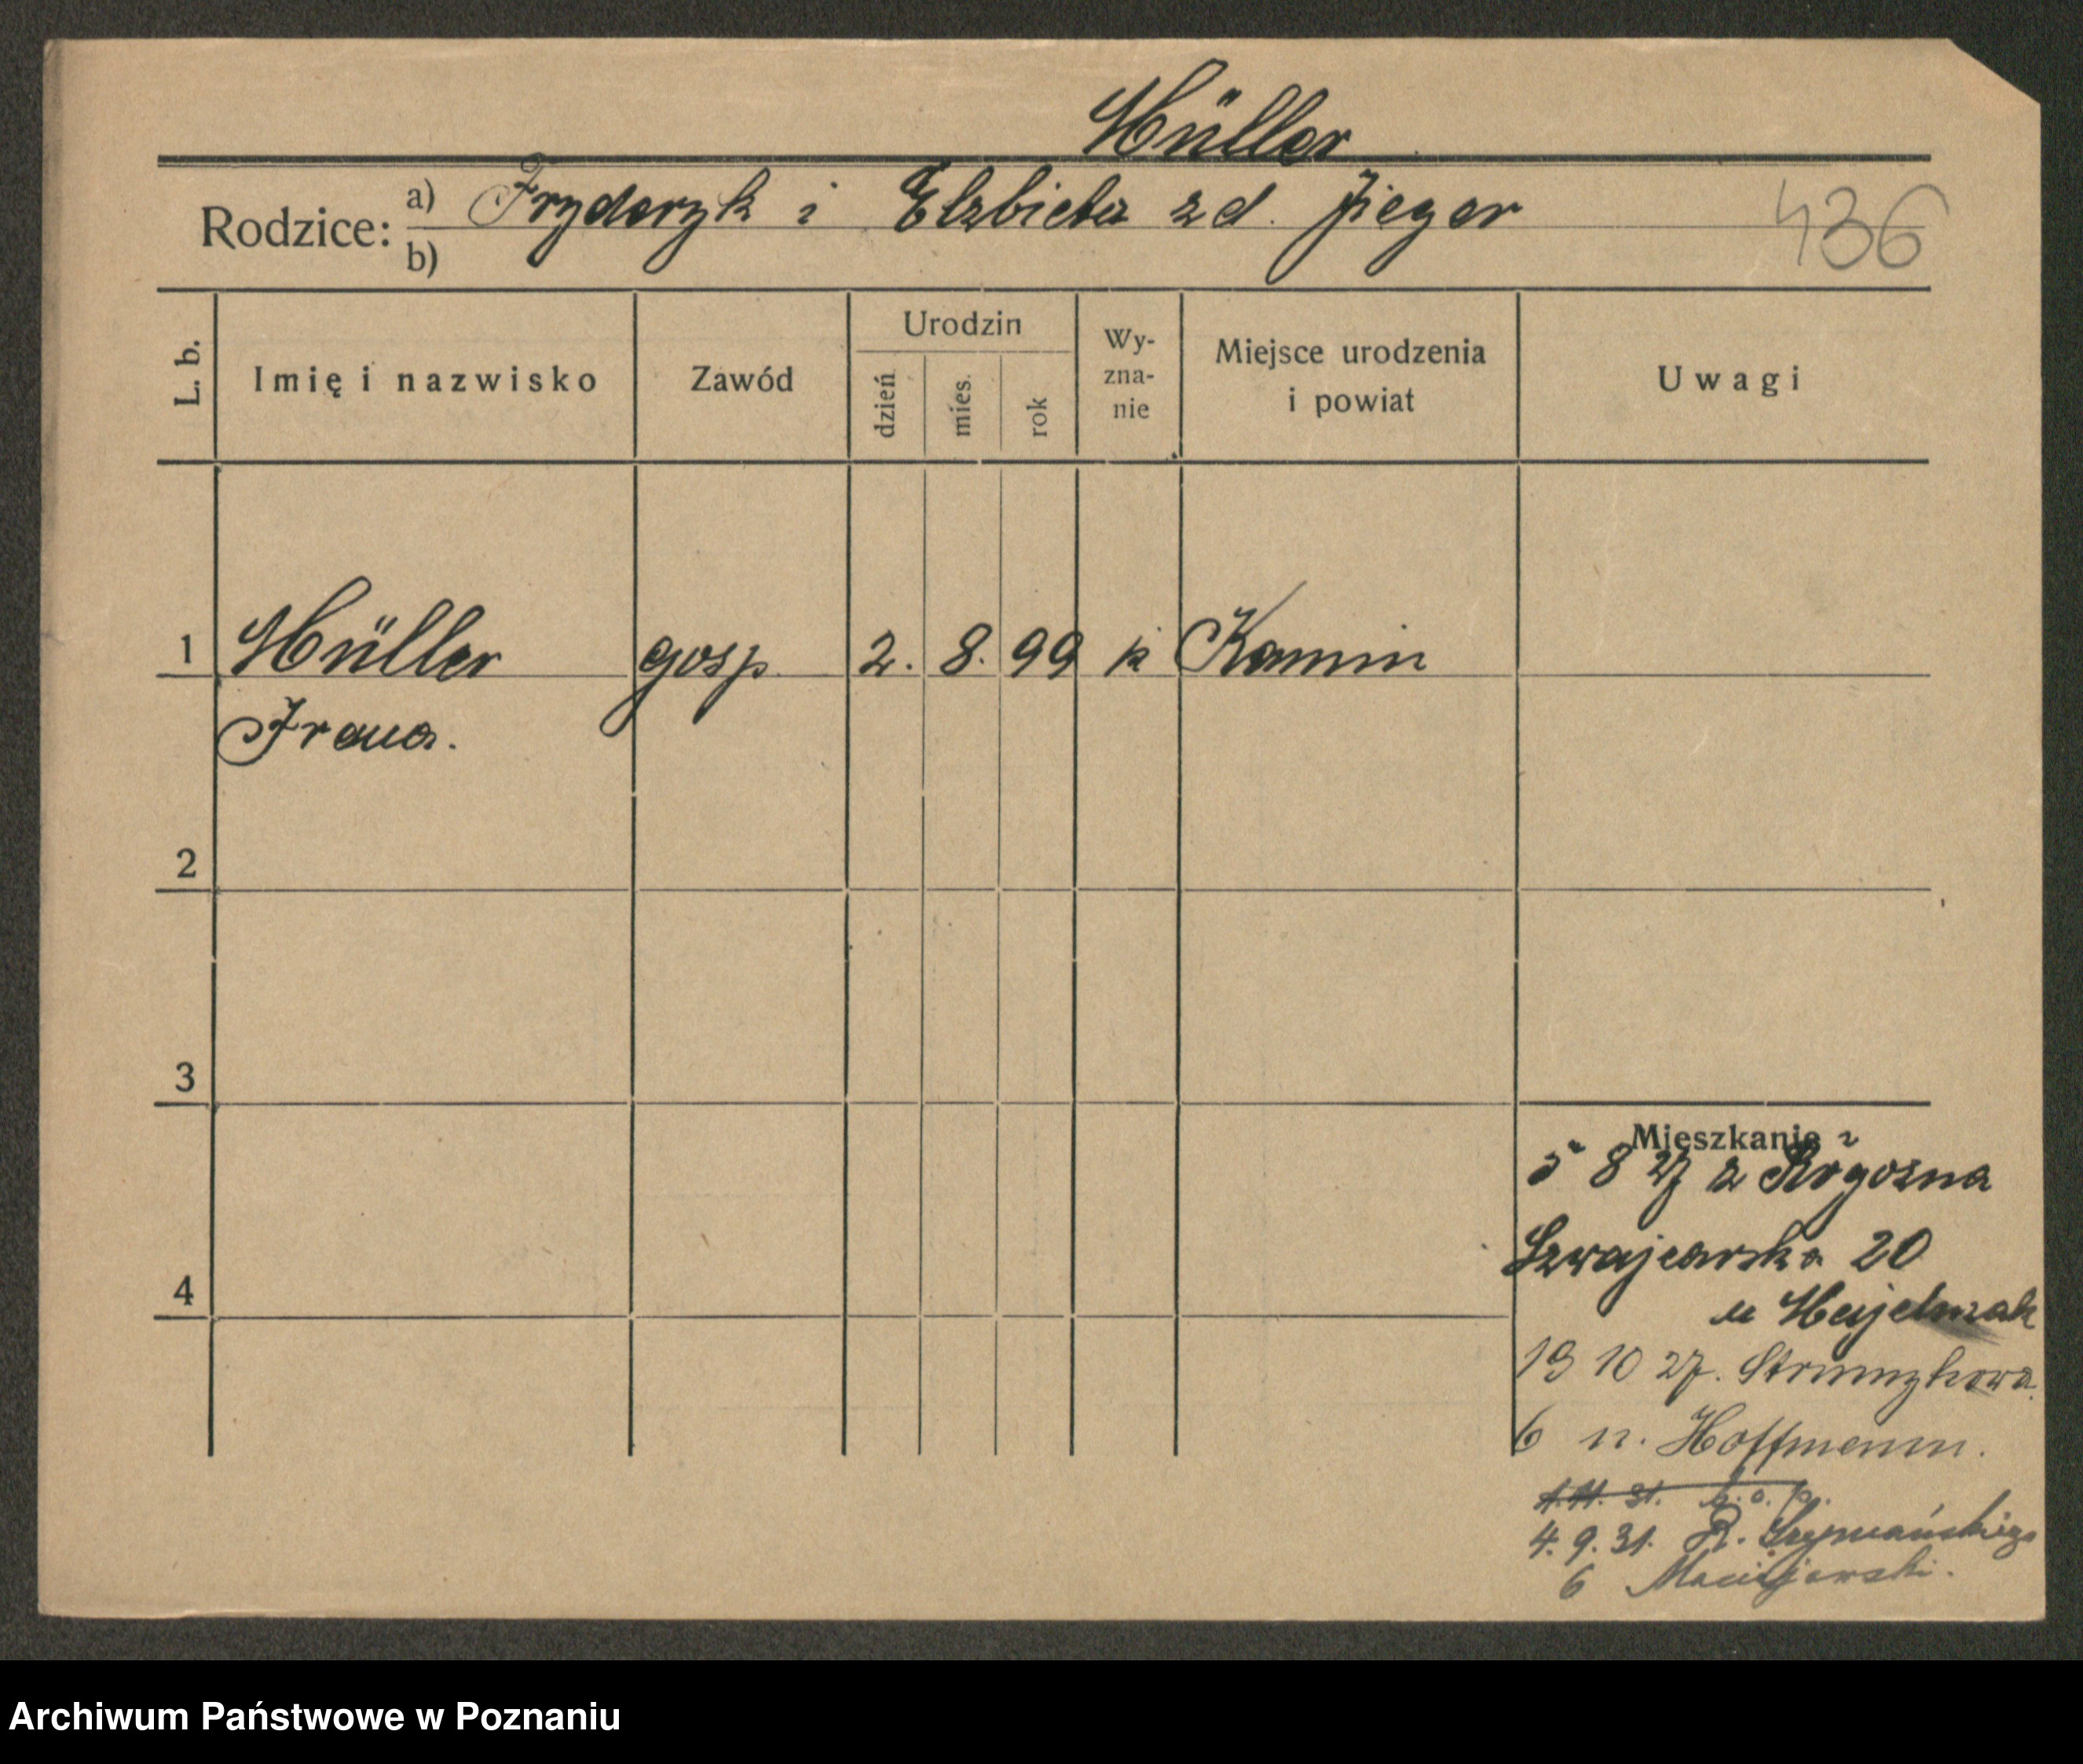 Müller
Rodzice: a) Fryderyk i Elzbieta z d. Jieger
b)
436
L. b. Imię i nazwisko Zawód Urodzin dzień mies. rok Wy-zna-nie Miejsce urodzenia i powiat Uwagi
1 Müller gosp. 2. 8. 99 k Kamin
2
3
4
Mieszkanie
5 8 27 z Rogozna
Szwajcarska 20
u
19 10 27. Strumykowa
6 u. Hoffmann.
b. o. p.
4. 9. 31. R. Szymańskiego
6 Maciejewski.
Archiwum Państwowe w Poznaniu